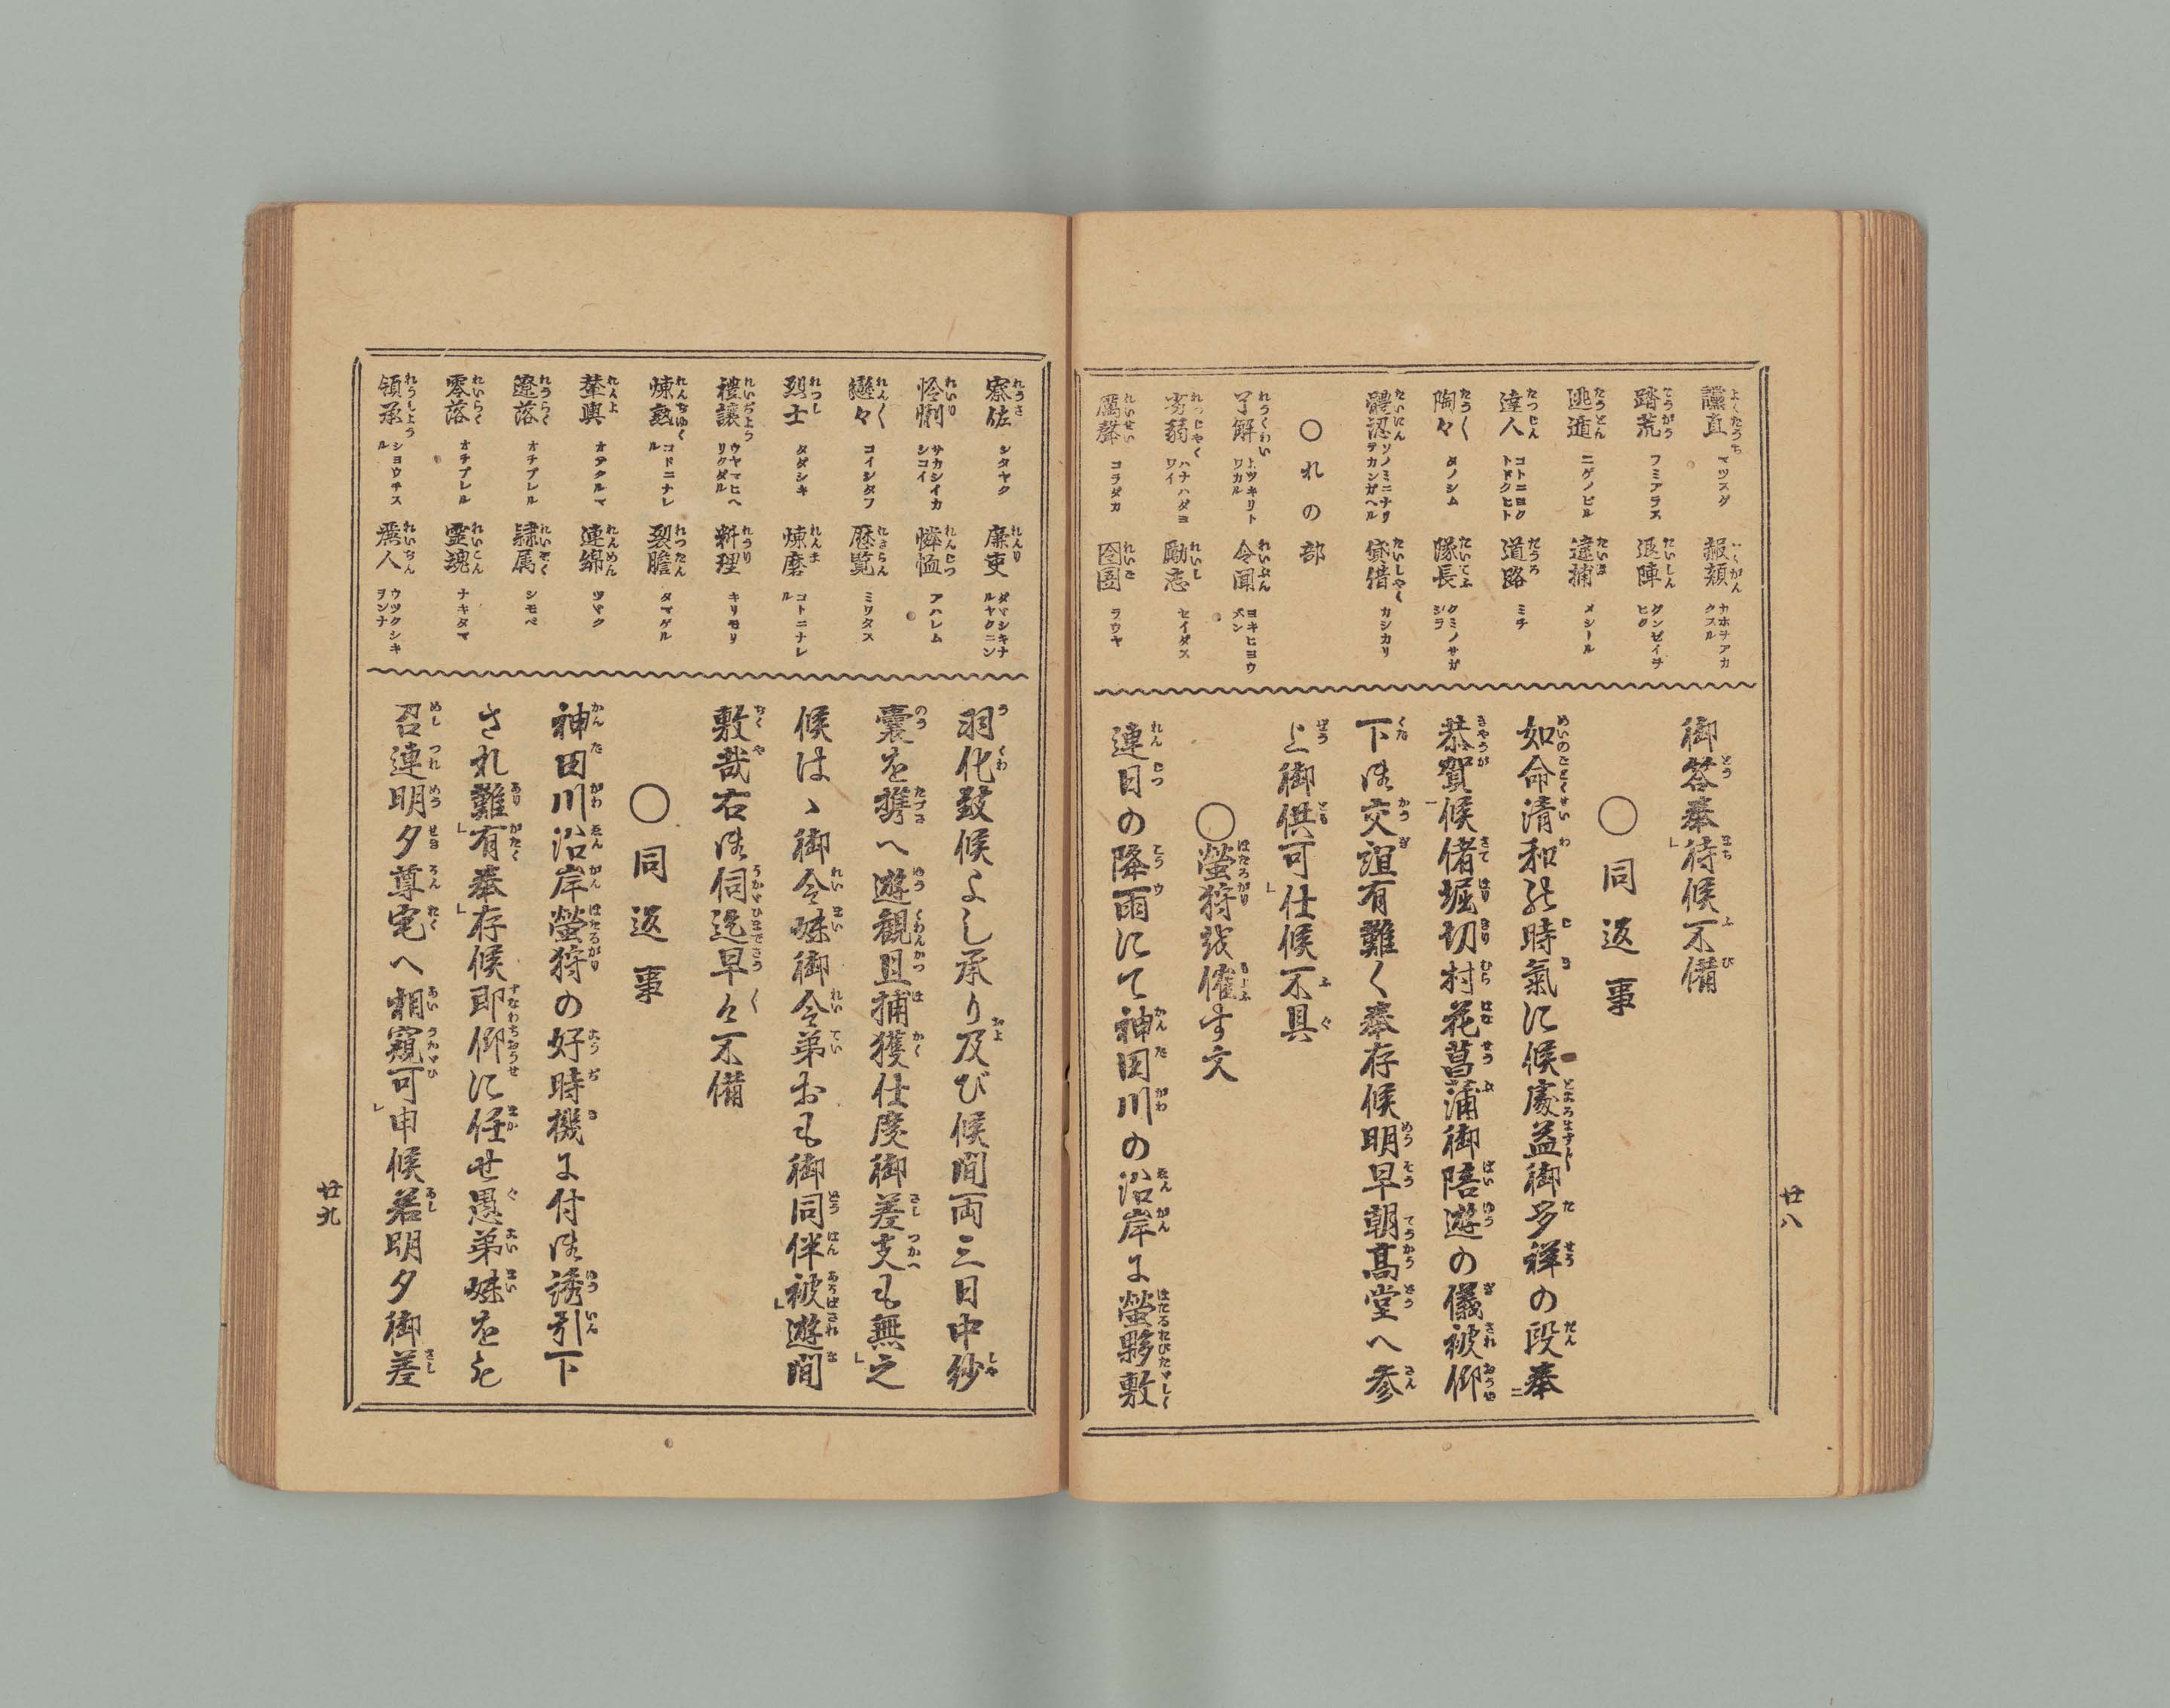 踏荒 フミアラス
退陣 グンゼイヲヒク
逃遁 ニゲノビル
逮捕 メシトル
達人 コトニヨクトドクヒト
道路 ミチ
陶々 タノシム
隊長 クミノサガシラ
體認
貸借 カシカリ
○れの部
了解 ハツキリトワカル
令聞 ヨキヒヨウバン
劣弱 ハナハダヨワイ
勵志 セイダス
厲聲 コヱダカ
囹圄 ラウヤ
御答奉待候不備
○同返事
如命清和の時氣に候處益御多祥の段奉
恭賀候偖堀切村花菖蒲御陪遊の儀被仰
下御交誼有難く奉存候明早朝高堂へ参
上御供可仕候不具
○螢狩を催す文
連日の降雨にて神田川の沿岸に螢夥敷
廿八
寮佐 シタヤク
廉吏 タヾシキナルヤクニン
怜悧 サカシイカシコイ
憐恤 アハレム
戀々 コイシタフ
歴覧 ミワタス
烈士 タダシキ
煉磨 コトニナレル
禮讓 ウヤマヒヘリクダル
料理 キリモリ
煉熟 コトニナレル
裂膽 タマゲル
輦輿 オテクルマ
連綿 ツヾク
遼落 オチブレル
隷属 シモベ
零落 オチブレル
靈魂 ナキタマ
領承 シヨウチスル
麗人 ウツクシキヲンナ
羽化致候よし承り及び候間両三日中紗
嚢を携へ遊観且捕獲仕度御差支も無之
候はゝ御令妹御令弟おも御同伴被遊間
敷哉右御伺迄早々不備
○同返事
神田川沿岸螢狩の好時機に付御誘引下
され難有奉存候即仰に任せ愚弟妹をも
召連明夕尊宅へ相窺可申候若明夕御差
廿九